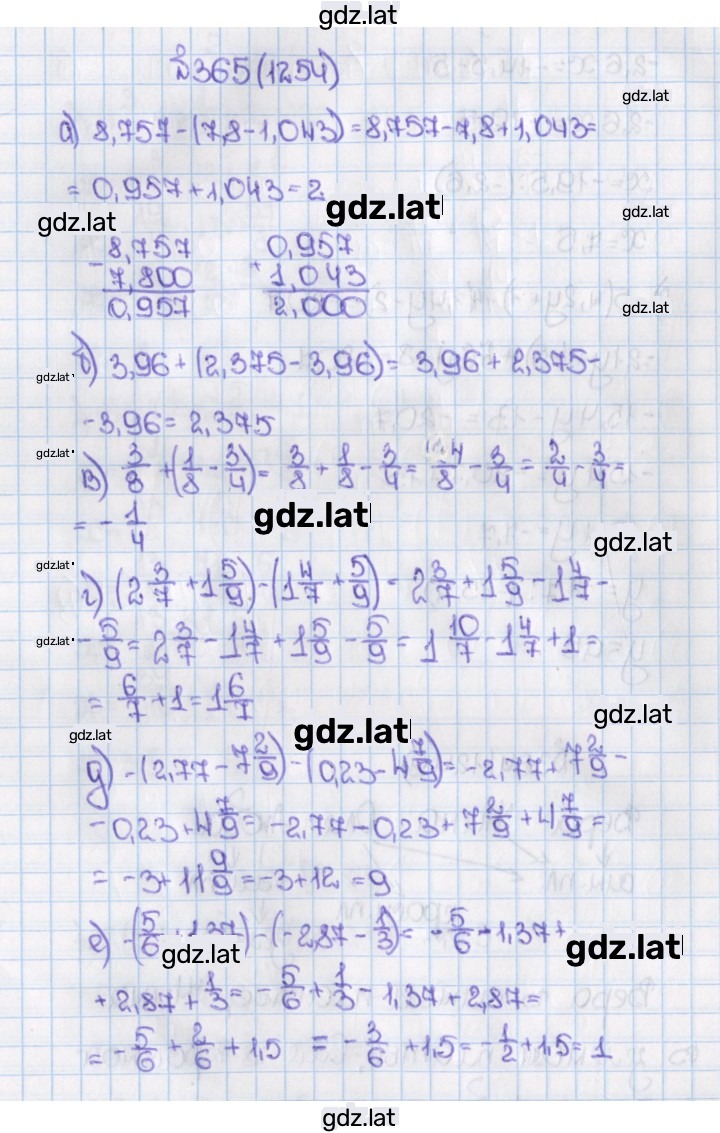 gdz.lat
№365(1254)
gdz.lat
а) 8,757-(7,8-1,043)=8,757-7,8+1,043=
= 0,957+1,043=2
gdz.lat
gdz.lat
gdz.lat
- 8,757 + 0,957
7,800 1,043
0,957 2,000
gdz.lat
б) 3,96+(2,375-3,96)= 3,96+2,375-
gdz.lat
-3,96= 2,375
gdz.lat
в) 3/8 +(1/8 - 3/4)= 3/8 + 1/8 - 3/4 = 4/8 - 3/4 = 2/4 - 3/4 =
= - 1/4
gdz.lat
gdz.lat
gdz.lat
г) (2 3/7 +1 5/9)-(1 4/7 + 5/9)= 2 3/7 +1 5/9 -1 4/7 -
gdz.lat
- 5/9 = 2 3/7 -1 4/7 +1 5/9 - 5/9 = 1 10/7 -1 4/7 +1=
= 6/7 +1=1 6/7
gdz.lat
gdz.lat
gdz.lat
д) -(2,77-7 2/9)-(0,23-4 7/9)= -2,77+7 2/9 -
-0,23+4 7/9 = -2,77-0,23+7 2/9 +4 7/9 =
= -3+11 9/9 =-3+12 =9
е) -(5/6 )-(-2,87- 1/3)= - 5/6 -1,37+
gdz.lat
gdz.lat
+2,87+ 1/3 = - 5/6 + 1/3 -1,37+2,87=
= - 5/6 + 2/6 +1,5 = - 3/6 +1,5=- 1/2 +1,5=1
gdz.lat